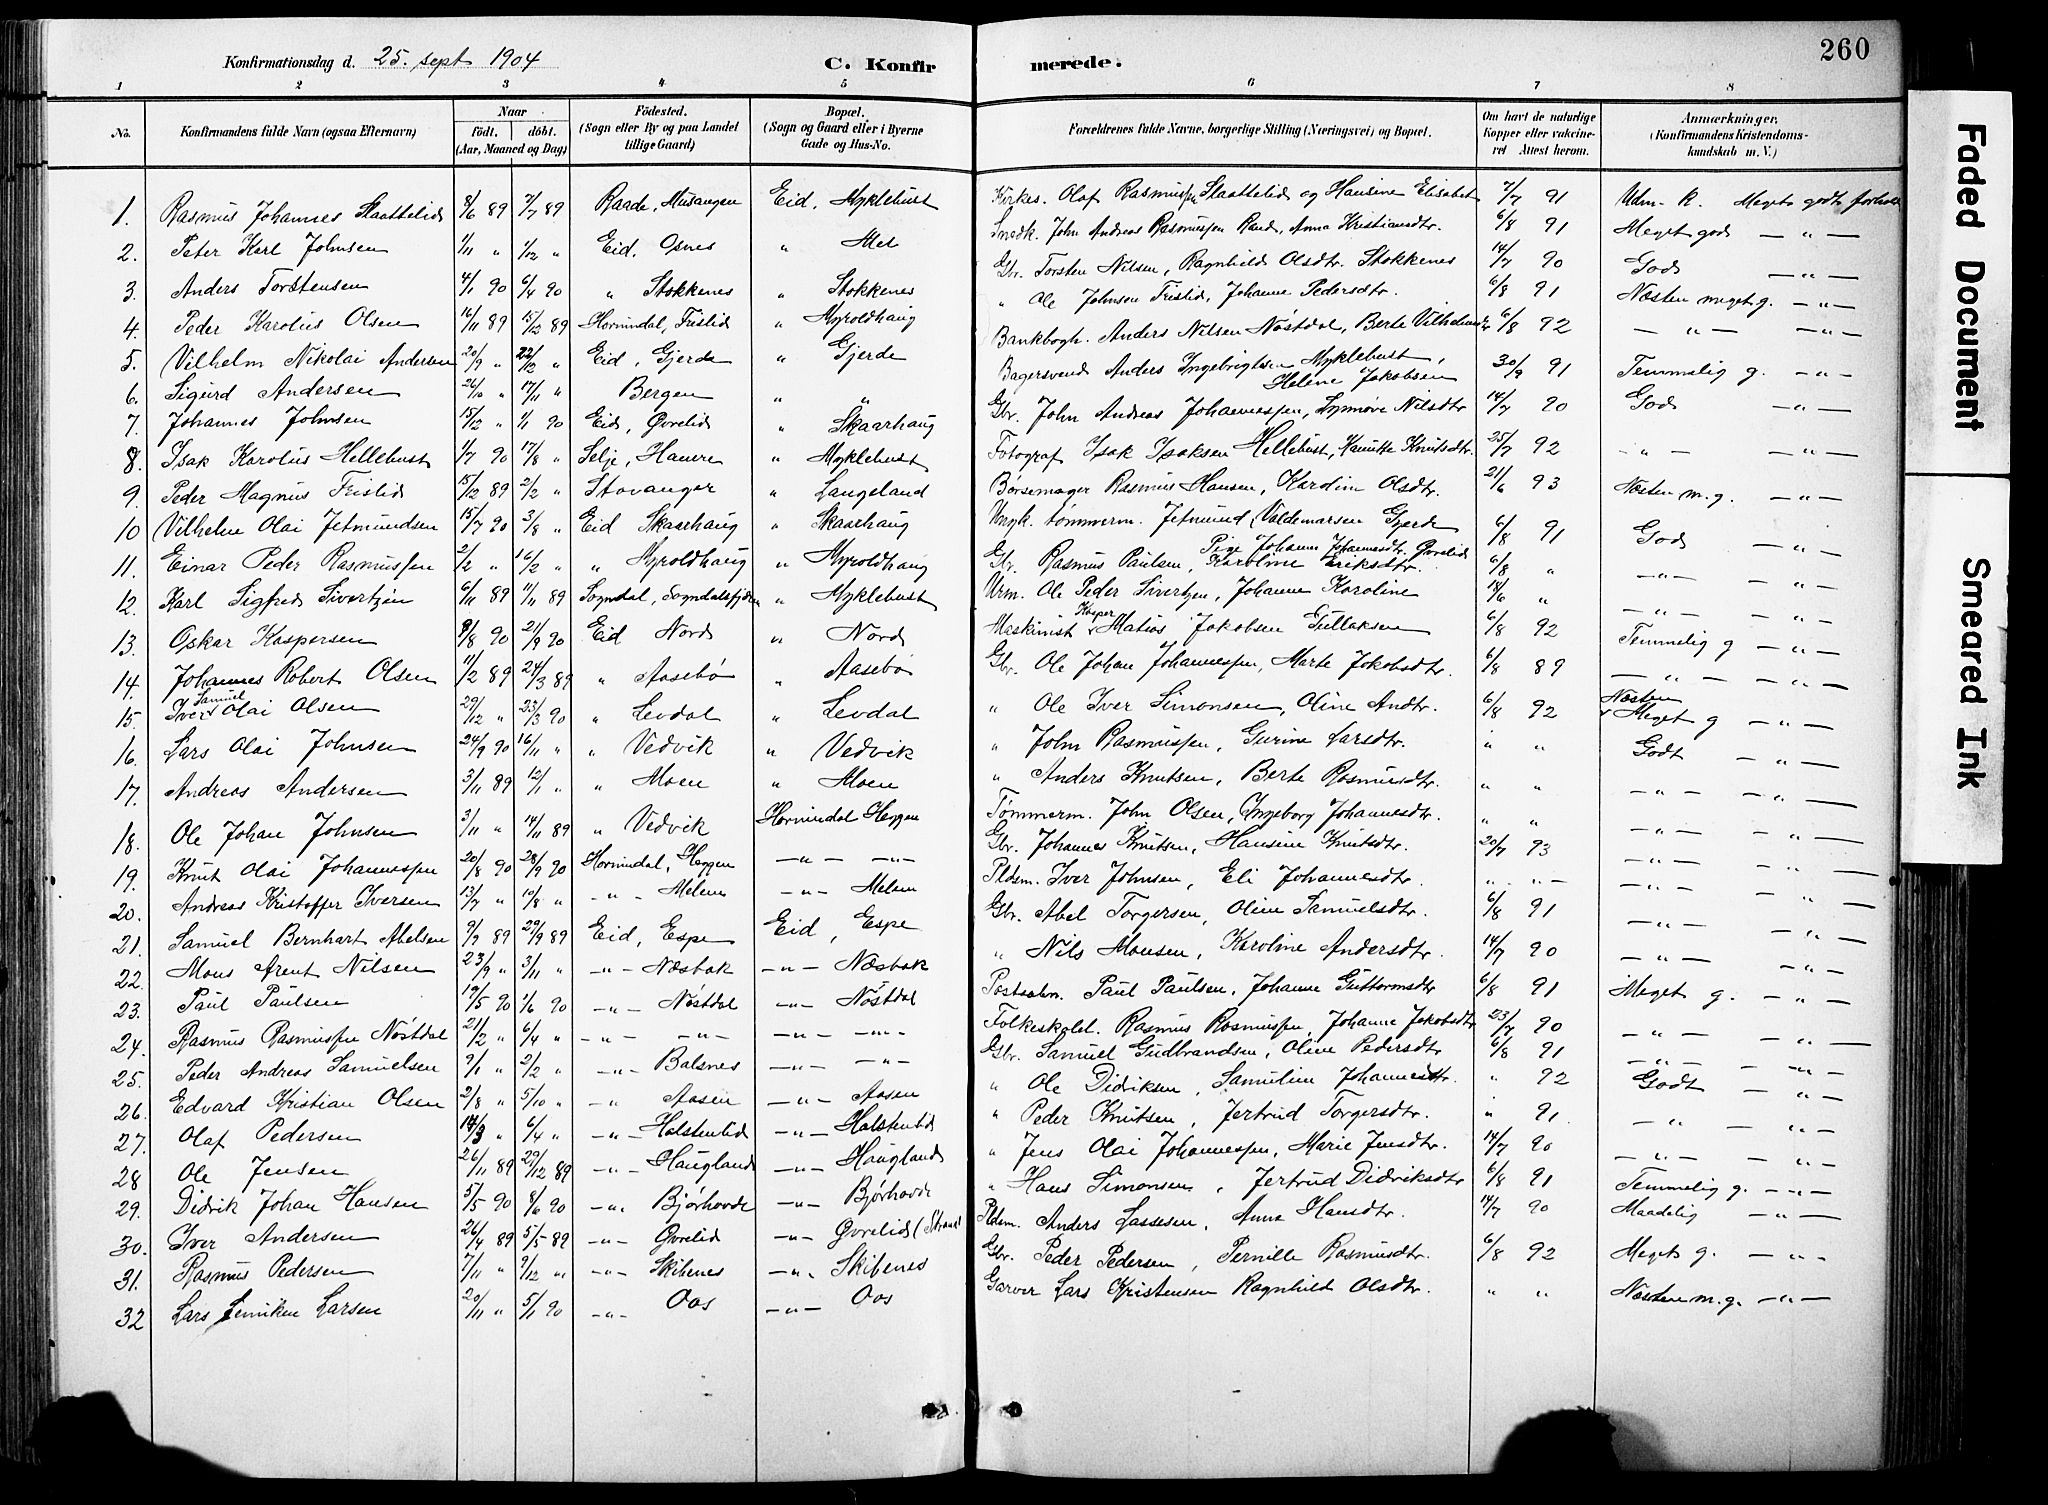 260
Konfirmationsdag d. 25. sept 1904 C. Konfirmerede.
1 2 3 4 5 6 7 8
No. Konfirmandens fulde Navn (ogsaa Efternavn) Naar født. døbt. (Aar, Maaned og Dag) Fødested. (Sogn eller By og paa Landet tillige Gaard) Bopæl. (Sogn og Gaard eller i Byerne Gade og Hus-No. Forældrenes fulde Navne, borgerlige Stilling (Næringsvei) og Bopæl. Om havt de naturlige Kopper eller vakcineret Attest herom. Anmærkninger. (Konfirmandens Kristendomskundskab m. V.)
1. Rasmus Johannes Slaattelid 8/6 89 7/7 89 Raade, Musangen Eid, Myklebust Kirkes. Olaf Rasmussen Slaattelid og Hansine Elisabet 7/7 91 Udm. k. Meget godt forhold
2. Peter Karl Johnsen 1/11 " 1/12 " Eid, Osnes " Mel Snedk. John Andreas Rasmussen Rand, Anna Kristiansdtr. 6/8 91 Meget god — " —
3. Anders Torstensen 4/1 90 6/4 90 " Stokkenes " Stokkenes Gbr. Torsten Nilsen, Ragnhild Olsdtr. Stokkenes 14/7 90 God — " —
4. Peder Karolus Olsen 16/11 89 15/12 89 Hornindal, Tristid " Myroldhaug " Ole Johnsen Tristid, Johanne Pedersdtr. 6/8 91 Næsten meget g. — " —
5. Vilhelm Nikolai Andersen 20/9 " 22/12 " Eid, Gjerde " Gjerde Bankbogh. Anders Nilsen Nøstdal, Berte Vilhelmsdtr 6/8 92 — " — — " —
6. Sigurd Andersen 26/10 " 17/11 " Bergen " " Bagersvend Anders Ingebrigtsen Myklebust, Helene Jakobsen 30/9 91 Temmelig g. — " —
7. Johannes Johnsen 15/12 " 1/1 90 Eid, Øvrelid " Skaarhaug Gbr. John Andreas Johannessen, Synnøve Nilsdtr 14/7 90 God — " —
8. Isak Karolus Hellebust 1/7 90 17/8 " Selje, Havre " Myklebust Fotograf Isak Isaksen Hellebust, Hanitte Knutsdtr. 25/7 92 — " — — " —
9. Peder Magnus Tristid 15/12 89 2/2 " Stavanger " Langeland Børsemager Rasmus Hansen, Karoline Olsdtr. 21/6 93 Næsten m. g. — " —
10 Vilhelm Olai Jetmundsen 15/7 90 3/8 " Eid Skaarhaug " Skaarhaug Ungk. tømmerm. Jetmund Valdemarsen Gjerde Pige Johanne Johannesdtr. Øvrelid 6/8 91 God — " —
11. Einar Peder Rasmussen 2/2 " 16/2 " " Myroldhaug " Myroldhaug Gbr. Rasmus Paulsen, Karoline Eriksdtr. 6/8 " — " — — " —
12. Karl Sigfred Sivertsen 6/11 89 11/11 89 Sogndal, Sogndalsfjøren " Myklebust Urm. Ole Peder Sivertsen, Johanne Karoline 14/6 " — " — — " —
13. Oskar Kaspersen 9/8 90 21/9 90 Eid Nord " Nord Maskinist Kasper Matias Jakobsen Tullaksen 6/8 92 Temmelig g — " —
14. Johannes Robert Olsen 11/2 89 24/3 89 " Aasebø " Aasebø Gbr. Ole Johan Johannessen, Marte Jakobsdtr. 6/8 89 — " — — " —
15 Iver Samuel Olai Olsen 29/12 " 23/3 90 " Levdal " Levdal " Ole Iver Simonsen, Oline Andtr. 6/8 92 Næsten Meget g — " —
16. Lars Olai Johnsen 24/9 90 16/11 " " Vedvik " Vedvik " John Rasmussen, Gurine Larsdtr. " " Godt — " —
17. Andreas Andersen 3/11 89 12/1 " " Moen " Moen " Anders Knutsen, Berte Rasmusdtr. " " — " — — " —
18. Ole Johan Johnsen 3/11 " 14/11 89 " Vedvik Hornindal Heggen Tømmerm. John Olsen, Ingeborg Johannesdtr. " " — " — — " —
19. Knut Olai Johannessen 20/8 90 28/9 90 Hornindal, Heggen — " — — " — Gbr. Johannes Knutsen, Hansine Knutsdtr. 20/7 93 — " — — " —
20. Andreas Kristoffer Iversen 13/7 " 10/8 " — " — Melem — " — Melem Pldsm. Iver Johnsen, Eli Johannesdtr. " " — " — — " —
21. Samuel Bernhart Abelsen 9/9 89 29/9 89 Eid, Espe Eid, Espe Gbr. Abel Torgersen, Oline Samuelsdtr. 6/8 91 — " — — " —
22. Mons Arent Nilsen 23/9 " 3/11 " — " — Næsbak — " — Næsbak " Nils Monsen, Karoline Andersdtr. 14/7 90 — " — — " —
23. Paul Paulsen 19/5 90 1/6 90 — " — Nøstdal — " — Nøstdal Postaabn. Paul Paulsen, Johanne Guttormsdtr 6/8 91 Meget g. — " —
24. Rasmus Rasmussen Nøstdal 21/2 " 6/4 " — " — — " — — " — — " — Folkeskolel. Rasmus Rasmussen, Johanne Jakobsdtr 23/7 90 — " — — " —
25. Peder Andreas Samuelsen 9/1 " 2/2 " — " — Balsnes — " — — " — Gbr. Samuel Gudbrandsen, Oline Pedersdtr 6/8 91 — " — — " —
26. Edvard Kristian Olsen 2/8 " 5/10 " — " — Aasen — " — Aasen " Ole Didriksen, Samuline Johannesdtr. " 92 Godt — " —
27. Olaf Pedersen 14/3 " 6/4 " — " — Holstenlid — " — Holstenlid " Peder Knutsen, Jertrud Torgersdtr. " 91 — " — — " —
28 Ole Jensen 26/11 89 29/12 89 — " — Haugland — " — Haugland " Jens Olai Johannessen, Marie Jensdtr. 14/7 90 — " — — " —
29. Didrik Johan Hansen 5/5 90 8/6 90 — " — Bjørhovde — " — Bjørhovde " Hans Simonsen, Jertrud Didriksdtr 6/8 91 Temmelig g. — " —
30. Iver Andersen 26/4 89 5/5 89 — " — Øvrelid — " — Øvrelid (Strand Pldsm. Anders Lassesen, Anna Hansdtr. 14/7 90 Maadelig — " —
31. Rasmus Pedersen 7/11 " 9/12 " — " — Skibenes — " — Skibenes Gbr. Peder Pedersen, Pernille Rasmusdtr. 6/8 92 Meget g. — " —
32 Lars Lenniken Larsen 20/11 " 5/1 90 — " — Oos — " — Oos Garver Lars Kristensen Ragnhild Olsdtr. " " Næsten m. g. — " —
Faded Document
Smeared Ink